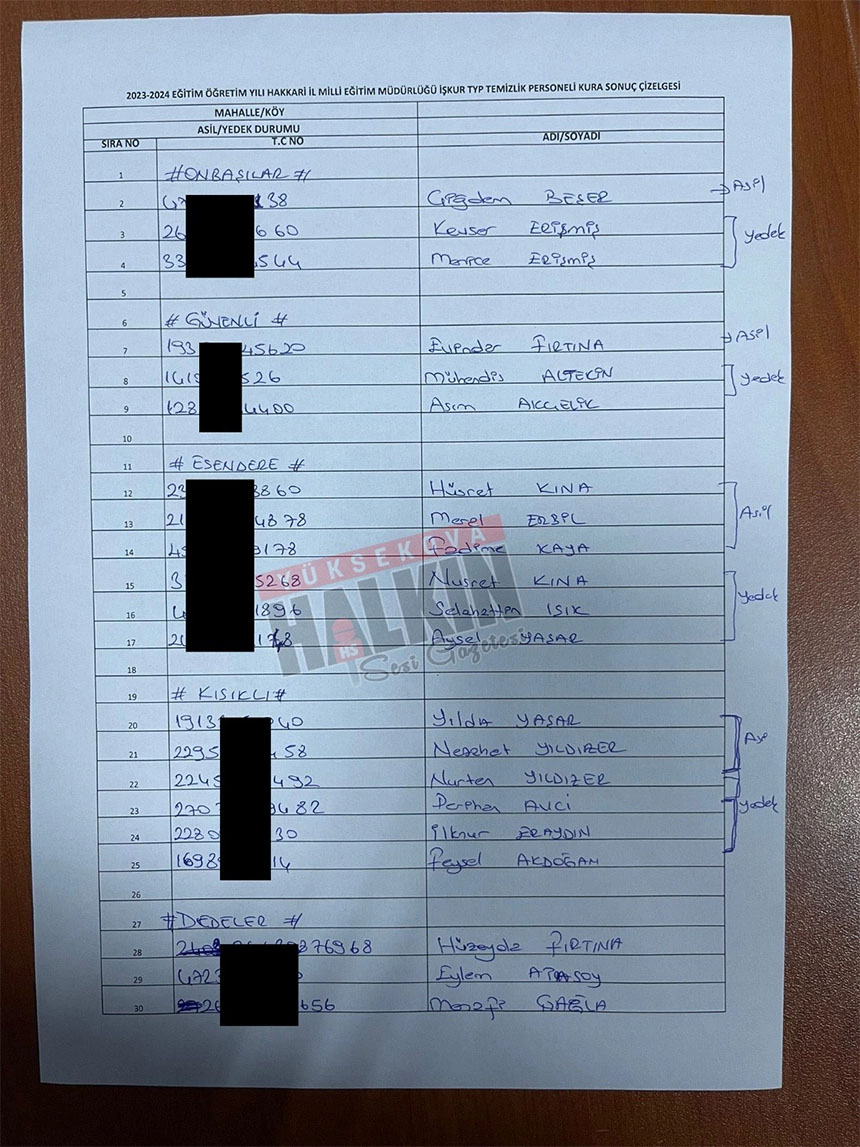 2023-2024 EĞİTİM ÖĞRETİM YILI HAKKARİ İL MİLLİ EĞİTİM MÜDÜRLÜĞÜ İŞKUR TYP TEMİZLİK PERSONELİ KURA SONUÇ ÇİZELGESİ
MAHALLE/KÖY
ASİL/YEDEK DURUMU
SIRA NO T.C NO ADI/SOYADI
1 #ONBAŞILAR #
2 138 Çiğdem BEŞER → Asil
3 26 660 Kevser ERİŞMİŞ yedek
4 33 544 ERİŞMİŞ
5
6 # GÜVENLİ #
7 193 45620 FIRTINA → Asil
8 526 Mühendis ALTEKİN yedek
9 128 4400 Asım AKÇELİK
10
11 # ESENDERE #
12 23 860 Hüsret KINA
13 21 4878 Meral ERBİL Asil
14 178 Fadime KAYA
15 3 5268 Nusret KINA yedek
16 1896 Selahattin IŞIK
17 Aysel YAŞAR
18
19 # KISIKLI #
20 1913 40 Yıldız YAŞAR
21 2295 58 Nezehet YILDIZER
22 2245 492 Nurten YILDIZER
23 270 482 Perihan AVCİ yedek
24 2280 30 İlknur ERAYDIN
25 1698 14 Feysel AKDOĞAN
26
27 #DEDELER #
28 76968 FIRTINA
29 4723 Eylem ATASOY
30 26 656 ÇAĞLA
YÜKSEKOVA
HALKIN
HS
Sesi Gazetesi